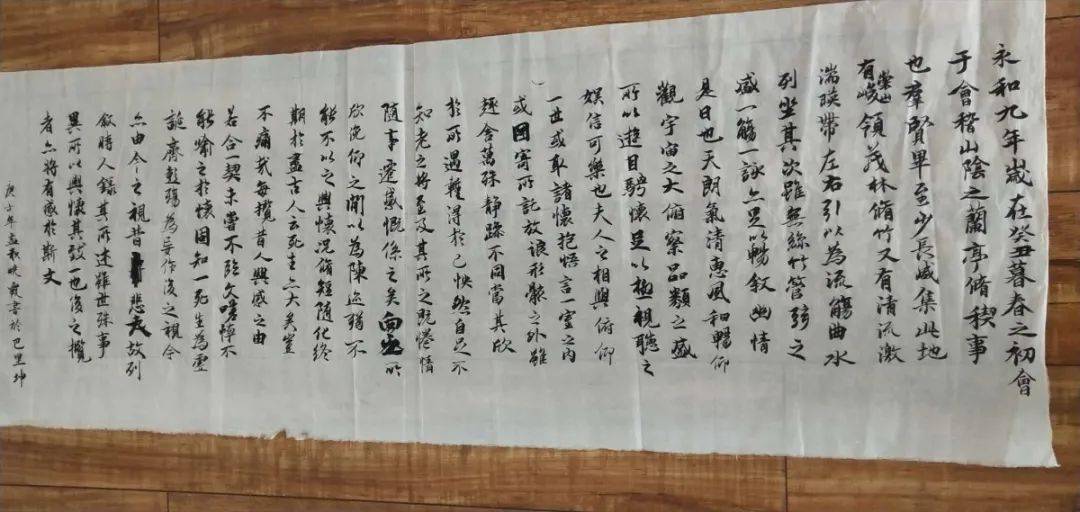 永和九年歲在癸丑暮春之初會
于會稽山陰之蘭亭脩稧事
也羣賢畢至少長咸集此地
有崇山峻領茂林脩竹又有清流激
湍暎帶左右引以為流觴曲水
列坐其次雖無絲竹管弦之
盛一觴一詠亦足以暢敘幽情
是日也天朗氣清惠風和暢仰
觀宇宙之大俯察品類之盛
所以遊目騁懷足以極視聽之
娛信可樂也夫人之相與俯仰
一世或取諸懷抱悟言一室之內
或因寄所託放浪形骸之外雖
趣舍萬殊靜躁不同當其欣
於所遇蹔得於己怏然自足不
知老之將至及其所之既惓情
隨事遷感慨係之矣向之所
欣俛仰之間以為陳迹猶不
能不以之興懷況脩短隨化終
期於盡古人云死生亦大矣豈
不痛哉每攬昔人興感之由
若合一契未嘗不臨文嗟悼不
能喻之於懷固知一死生為虛
誕齊彭殤為妄作後之視今
亦由今之視昔悲夫故列
敘時人錄其所述雖世殊事
異所以興懷其致一也後之攬
者亦將有感於斯文
庚子年孟秋映霞書於巴里坤